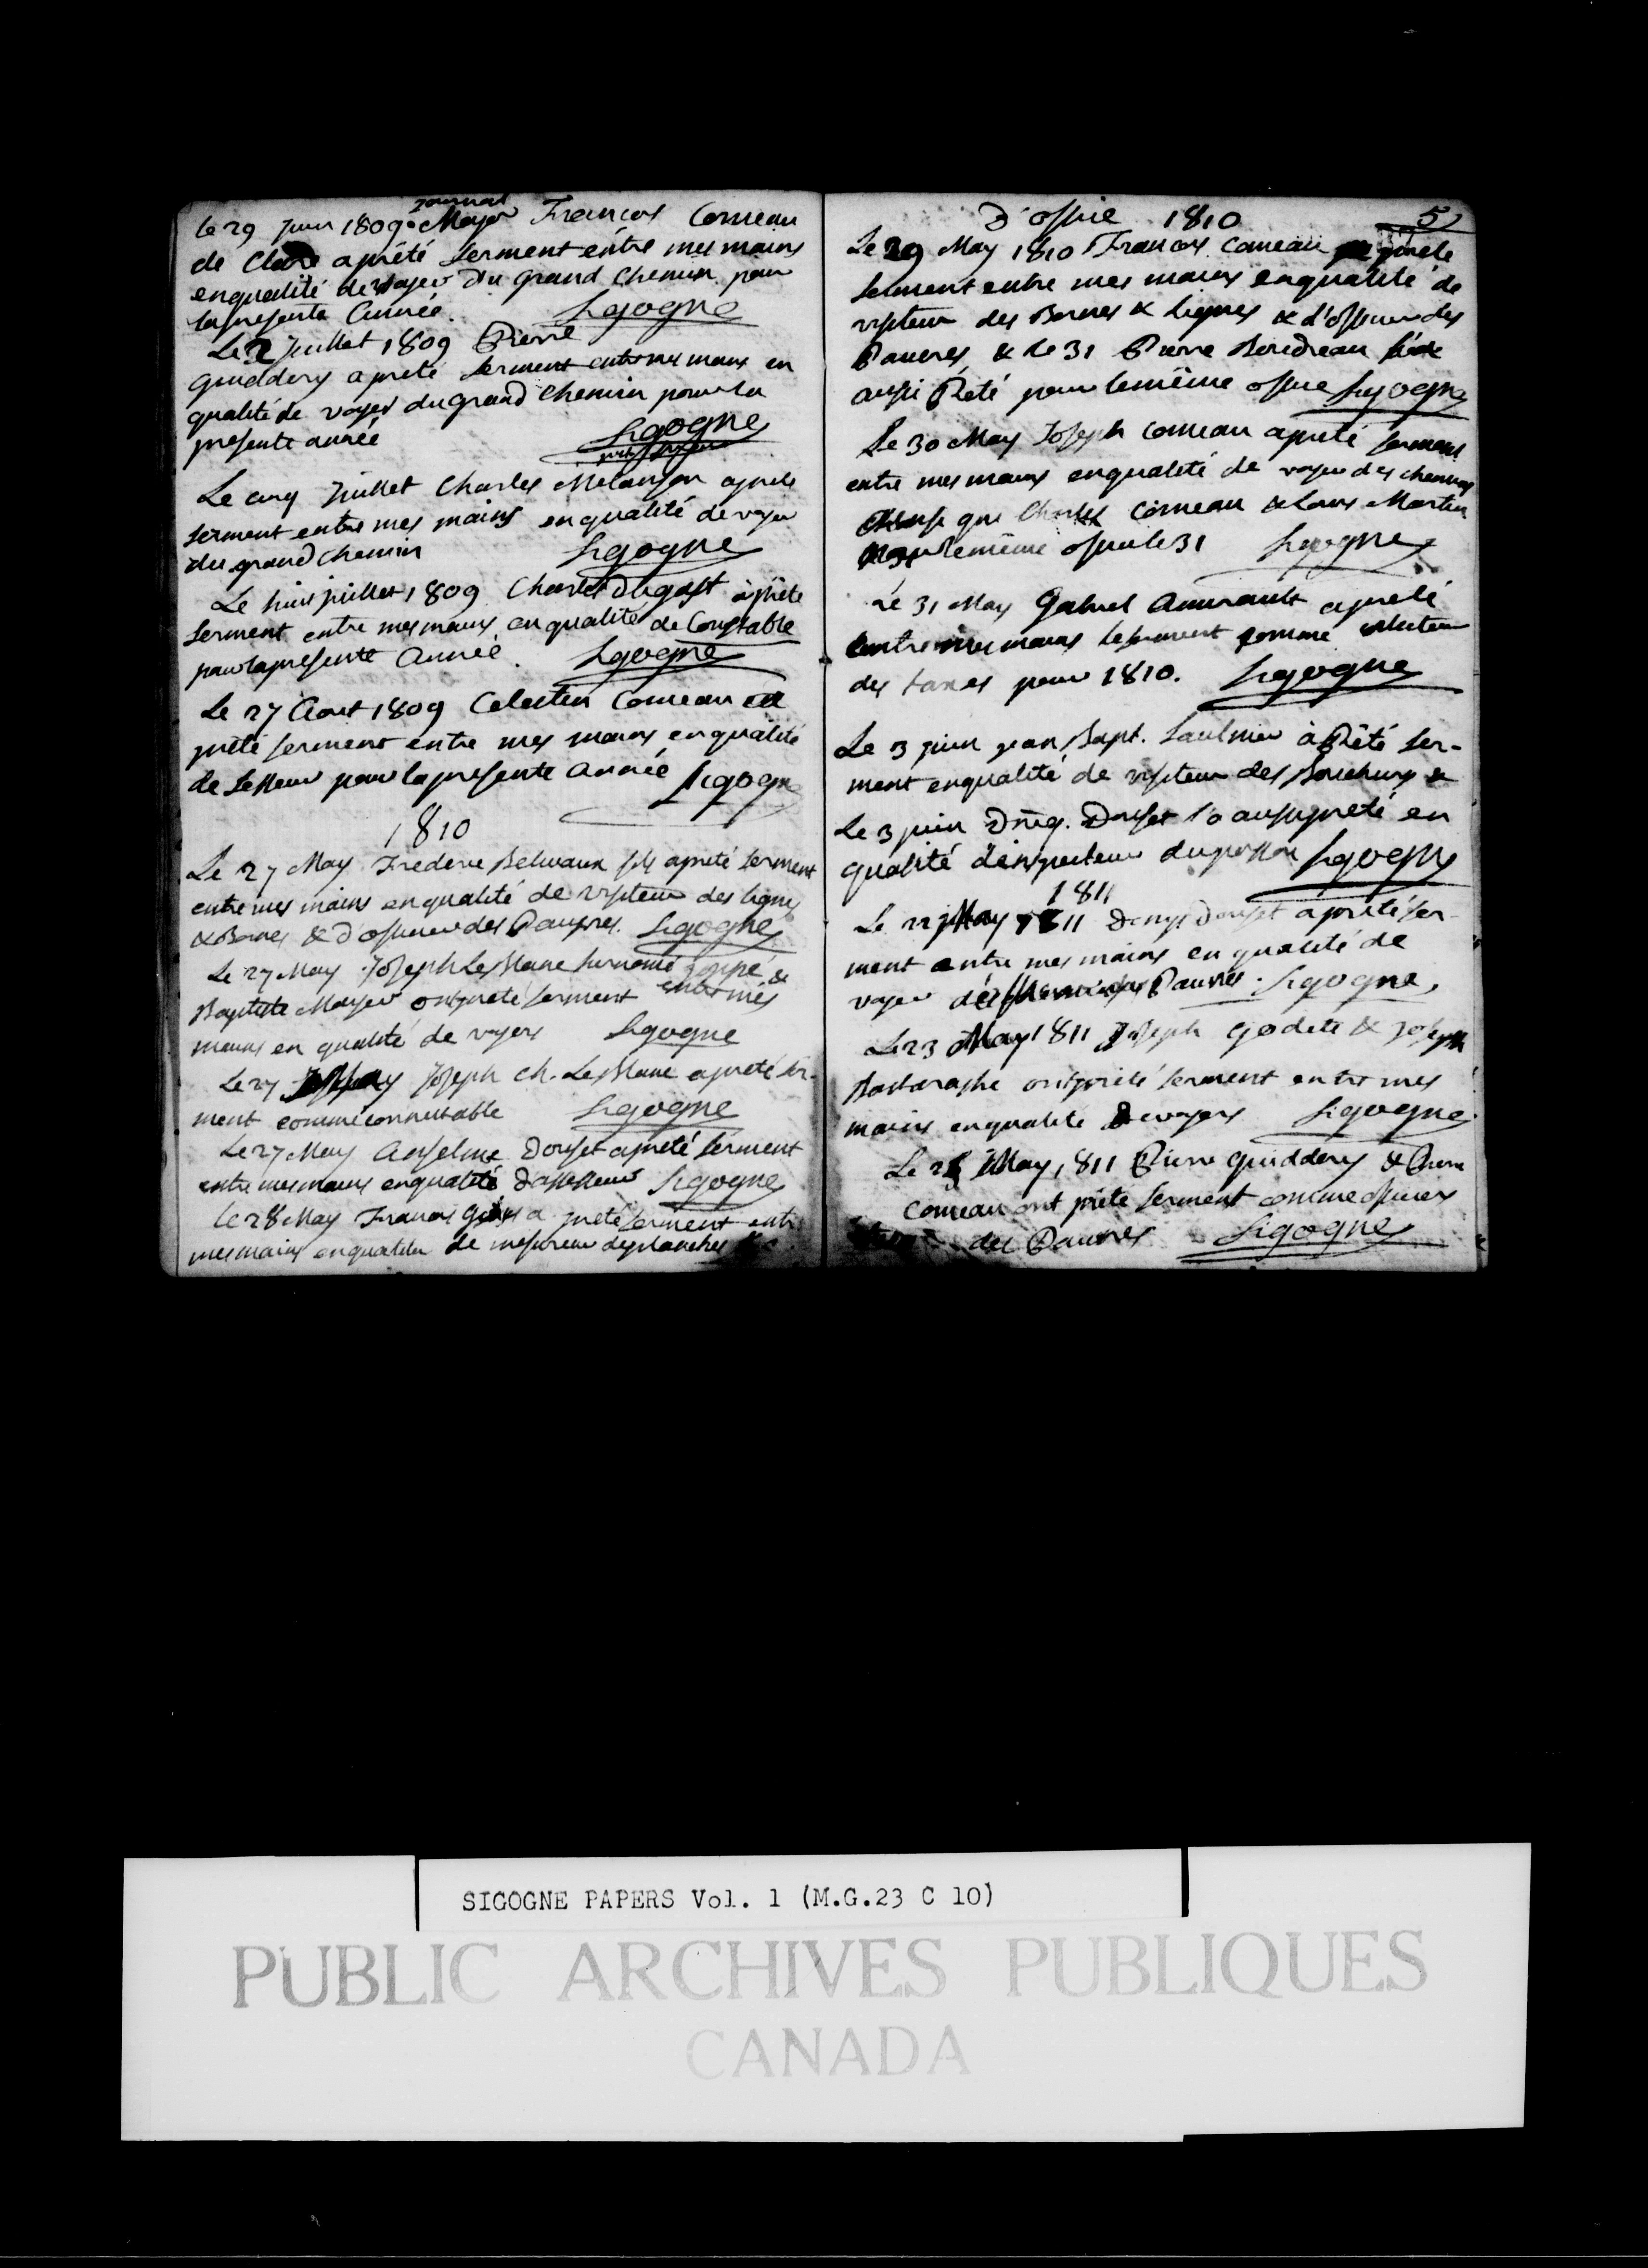 Le 29 Juin 1809 Mayer François Comeau
de Clare a prêté serment entre mes mains
en qualité de voyer du grand Chemin pour
la presente Année. Sigogne
Le 2 Juillet 1809 Pierre
Quiddery a preté serment entre mes mains en
qualité de voyer du grand Chemin pour la
presente année Sigogne
Le cinq Juillet Charles Melanson a prete
serment entre mes mains en qualité de voyer
du grand chemin Sigogne
Le huit juillet 1809 Charles Dugast a prêté
serment entre mes mains en qualité de Constable
pour la presente Année. Sigogne
Le 27 Aout 1809 Celestin Comeau a
prêté serment entre mes mains en qualité
de pour la presente Année Sigogne
1810
Le 27 May Frederic Beliveaux fils a preté serment
entre mes mains en qualité de visiteur des lignes
& Bornes & d'officier des Pauvres. Sigogne
Le 27 May Joseph LeBlanc surnomé &
Baptiste Mayer ont preté serment entre mes
mains en qualité de voyers Sigogne
Le 27 May Joseph Ch. LeBlanc a preté ser-
ment comme connestable Sigogne
Le 27 May Anselme Doucet a preté serment
entre mes mains en qualité d'assesseur Sigogne
le 28 May Francois a preté serment entre
mes mains en qualité de mesureur de planches
D'office 1810 5
Le 29 May 1810 Francois Comeau prete
serment entre mes mains en qualité de
visiteur des Bornes & Lignes & d'officier des
Pauvres, & le 31 Pierre Boudreau
aussi Prêté pour le même office Sigogne
Le 30 May Joseph Comeau a preté serment
entre mes mains en qualité de voyer des chemins
que Charles Comeau & Louis Martin
le même office le 31 Sigogne
Le 31 May Gabriel Amirault a preté
entre mes mains le serment comme collecteur
des taxes pour 1810. Sigogne
Le 3 juin jean Bapt. Saulnier a Prêté ser-
ment en qualité de visiteur des &
Le 3 juin Doucet l'a aussi preté en
qualité d'inspecteur du poisson Sigogne
1811
Le May 1811 Denys Doucet a preté ser-
ment entre mes mains en qualité de
voyer des Pauvres. Sigogne
Le 23 May 1811 Joseph Godete & Joseph
Bastarashe ont preté serment entre mes
mains en qualite de voyers Sigogne
Le May 1811 Pierre Quiddery & Pierre
Comeau ont prêté serment comme officiers
des Pauvres Sigogne
SIGOGNE PAPERS Vol. 1 (M.G.23 C 10)
PUBLIC ARCHIVES PUBLIQUES
CANADA